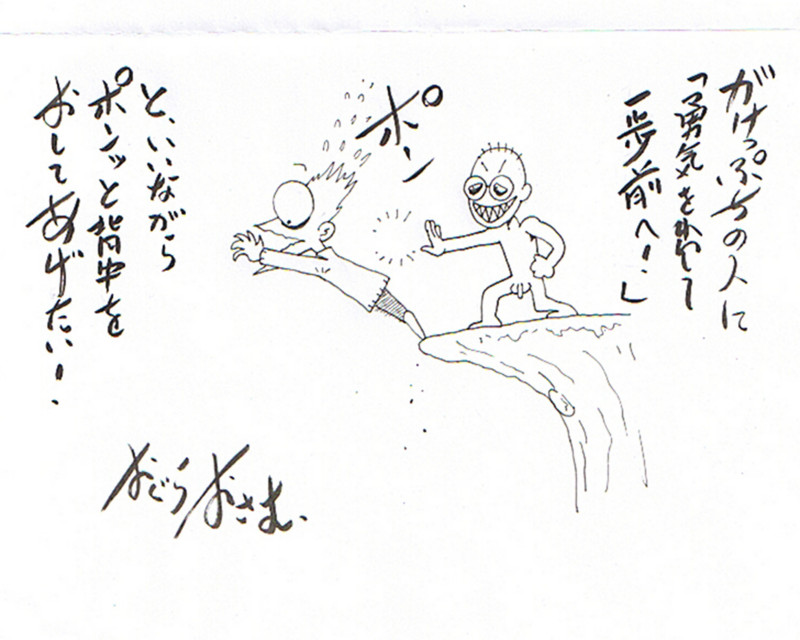 がけっぷちの人に
「勇気を出して
一歩前へ!」
ポン
と、いいながら
ポンッと背中を
おしてあげたい!.
おごうおさむ.